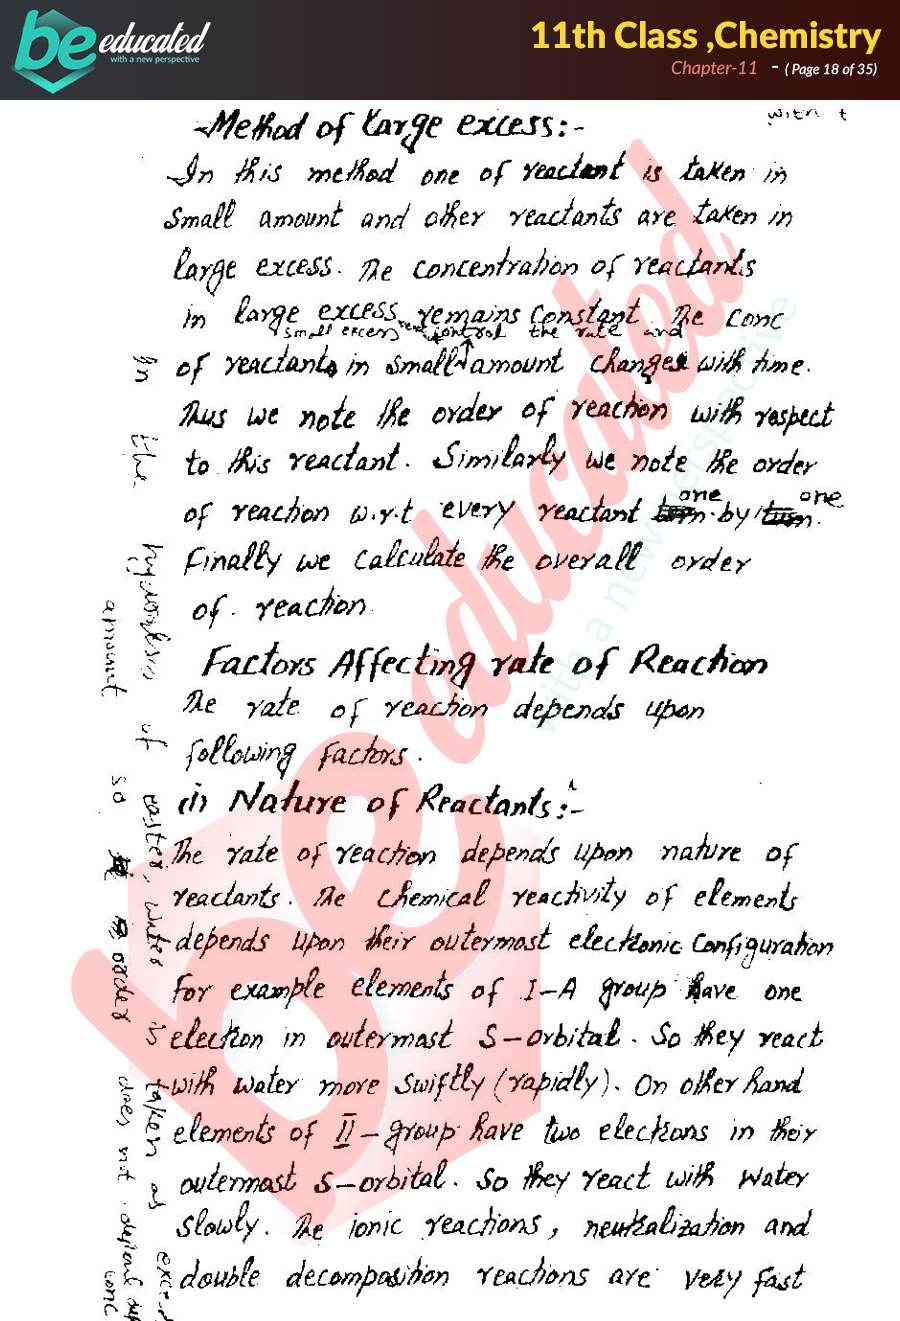 be educated
with a new perspective
11th Class ,Chemistry
Chapter-11 - ( Page 18 of 35)
with t
Method of large excess:-
In this method one of reactant is taken in
small amount and other reactants are taken in
large excess. The concentration of reactants
in large excess remains constant. The conc
small excess control the rate and
of reactants in small amount changes with time.
Thus we note the order of reaction with respect
to this reactant. Similarly we note the order
of reaction w.r.t every reactant one by one.
Finally we calculate the overall order
of. reaction.
Factors Affecting rate of Reaction
The rate of reaction depends upon
following factors.
(i) Nature of Reactants:-
The rate of reaction depends upon nature of
reactants. The chemical reactivity of elements
depends upon their outermost electronic configuration
For example elements of I-A group have one
election in outermost S-orbital. So they react
with water more swiftly (rapidly). On other hand
elements of II-group have two elections in their
outermost S-orbital. So they react with water
slowly. The ionic reactions, neutralization and
double decomposition reactions are very fast
In the hydrolysis of easter, water is taken as exces
amount so order does not depend conc
be educated
with a new perspective